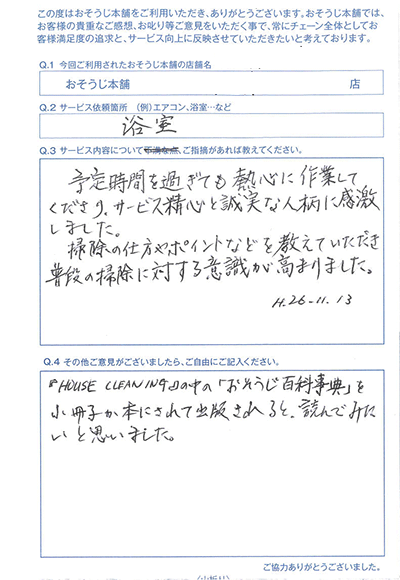 この度はおそうじ本舗をご利用いただき、ありがとうございます。おそうじ本舗では、
お客様の貴重なご感想、お叱り等ご意見をいただく事で、常にチェーン全体としてお
客様満足度の追求と、サービス向上に反映させていただきたいと考えております。
Q.1 今回ご利用されたおそうじ本舗の店舗名
おそうじ本舗 店
Q.2 サービス依頼箇所 (例)エアコン、浴室…など
浴室
Q.3 サービス内容について不満な点、ご指摘があれば教えてください。
予定時間を過ぎても熱心に作業して
くださり、サービス精心と誠実な人柄に感激
しました。
掃除の仕方やポイントなどを教えていただき
普段の掃除に対する意識が高まりました。
H.26-11.13
Q.4 その他ご意見がございましたら、ご自由にご記入ください。
『HOUSE CLEANING』の中の「おそうじ百科事典」を
小冊子か本にされて出版されると、読んでみた
いと思いました。
ご協力ありがとうございました。